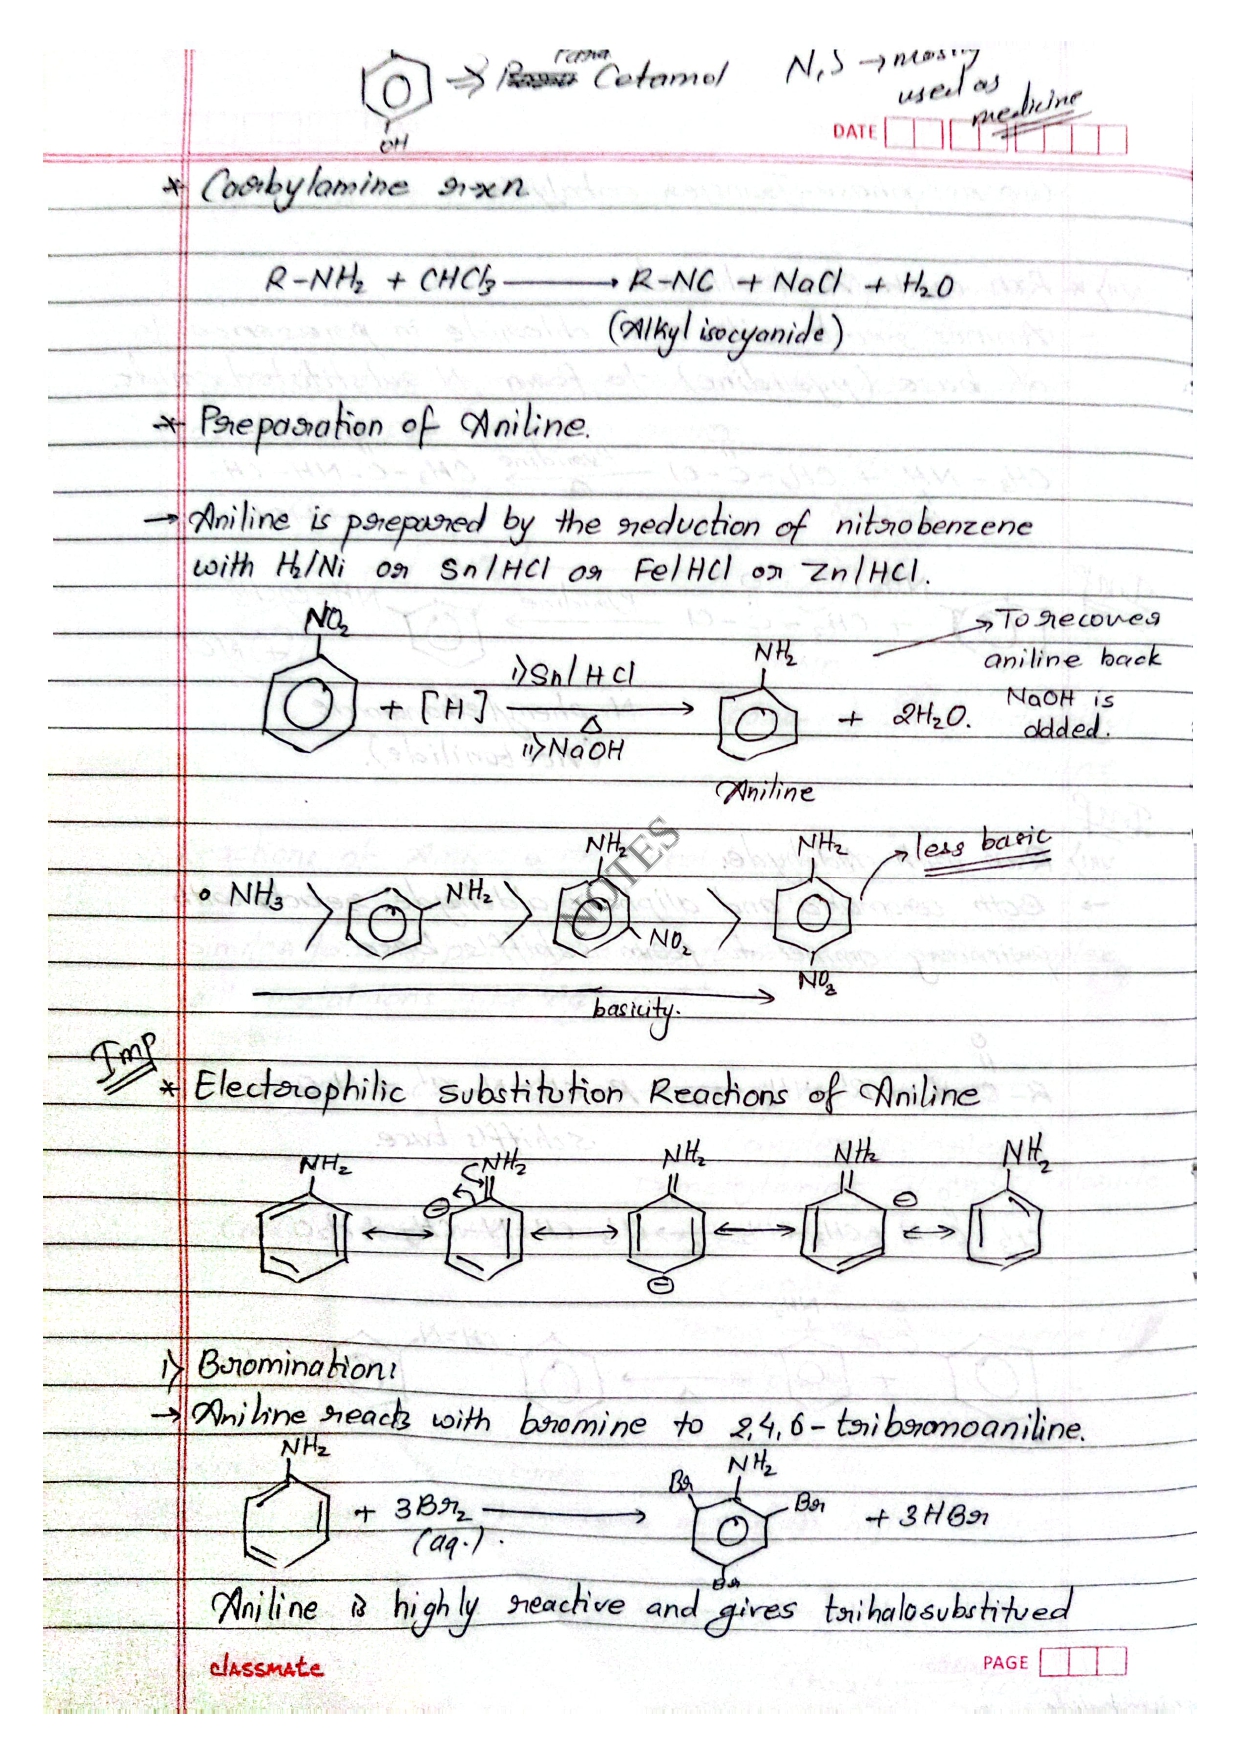 Para
Cetamol
N, S → mostly
used as
medicine
OH
DATE
* Carbylamine rxn
R-NH₂ + CHCl₃ → R-NC + NaCl + H₂O
(Alkyl isocyanide)
* Preparation of Aniline.
→ Aniline is prepared by the reduction of nitrobenzene
with H₂/Ni or Sn/HCl or Fe/HCl or Zn/HCl.
NO₂ + [H] i) Sn/HCl Δ ii) NaOH → NH₂ + 2H₂O.
→ To recover
aniline back
NaOH is
added.
Aniline
NOTES
• NH₃ > NH₂ > NH₂ NO₂ > NH₂ NO₂ → less basic
basicity.
Imp
* Electrophilic substitution Reactions of Aniline
NH₂ ↔ ⊖ NH₂ ↔ NH₂ ⊖ ↔ NH₂ ⊖ ↔ NH₂
i) Bromination:
→ Aniline reacts with bromine to 2,4,6-tribromoaniline.
NH₂ + 3Br₂ (aq.) → NH₂ Br Br Br + 3HBr
Aniline is highly reactive and gives trihalosubstitued
classmate
PAGE